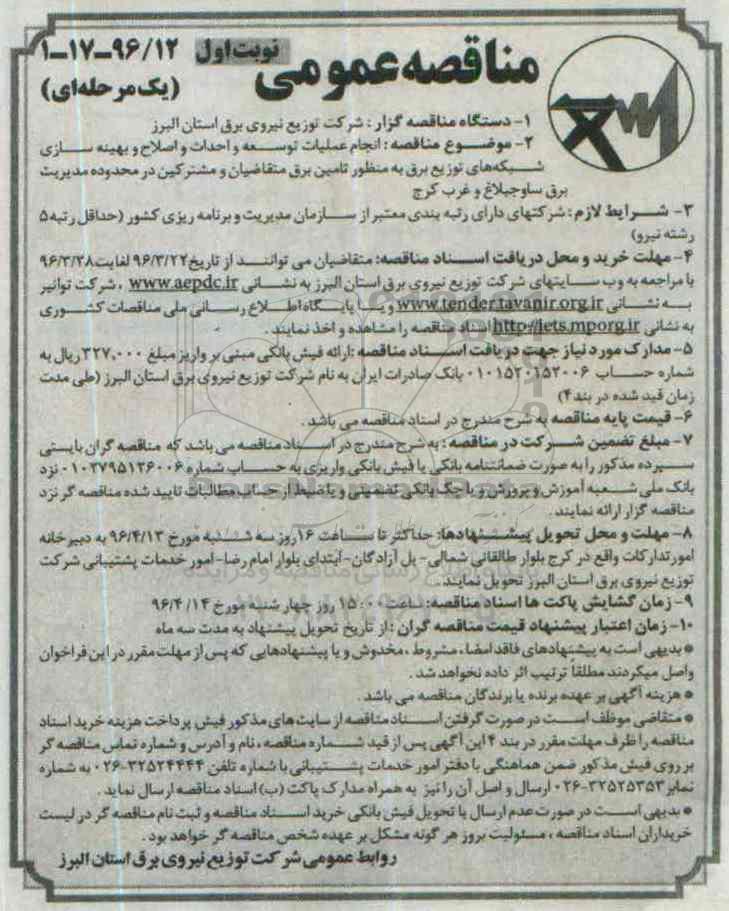 مناقصه عمومی
نوبت اول
۹۶/۱۲-۱۷-۱
(یک مرحله‌ای)
۱- دستگاه مناقصه گزار : شرکت توزیع نیروی برق استان البرز
۲- موضوع مناقصه : انجام عملیات توسعه و احداث و اصلاح و بهینه سازی
شبکه‌های توزیع برق به منظور تامین برق متقاضیان و مشترکین در محدوده مدیریت
برق ساوجبلاغ و غرب کرج
۳- شرایط لازم : شرکتهای دارای رتبه بندی معتبر از سازمان مدیریت و برنامه ریزی کشور (حداقل رتبه ۵
رشته نیرو)
۴- مهلت خرید و محل دریافت اسناد مناقصه: متقاضیان می توانند از تاریخ ۹۶/۳/۲۲ لغایت ۹۶/۳/۲۸
با مراجعه به وب سایتهای شرکت توزیع نیروی برق استان البرز به نشانی www.aepdc.ir ، شرکت توانیر
به نشانی www.tender.tavanir.org.ir و یا پایگاه اطلاع رسانی ملی مناقصات کشوری
به نشانی http://iets.mporg.ir اسناد مناقصه را مشاهده و اخذ نمایند .
۵- مدارک مورد نیاز جهت دریافت اسناد مناقصه :ارائه فیش بانکی مبنی بر واریز مبلغ ۳۲۷,۰۰۰ ریال به
شماره حساب ۰۱۰۱۵۲۰۱۵۲۰۰۶ بانک صادرات ایران به نام شرکت توزیع نیروی برق استان البرز (طی مدت
زمان قید شده در بند ۴)
۶- قیمت پایه مناقصه به شرح مندرج در اسناد مناقصه می باشد .
۷- مبلغ تضمین شرکت در مناقصه : به شرح مندرج در اسناد مناقصه می باشد که مناقصه گران بایستی
سپرده مذکور را به صورت ضمانتنامه بانکی یا فیش بانکی واریزی به حساب شماره ۰۱۰۳۷۹۵۱۳۶۰۰۶ نزد
بانک ملی شعبه آموزش و پرورش و یا چک بانکی تضمینی و یا ضبط از حساب مطالبات تایید شده مناقصه گر نزد
مناقصه گزار ارائه نمایند .
۸- مهلت و محل تحویل پیشنهادها: حداکثر تا ساعت ۱۶ روز سه شنبه مورخ ۹۶/۴/۱۳ به دبیرخانه
امور تدارکات واقع در کرج بلوار طالقانی شمالی- پل آزادگان- ابتدای بلوار امام رضا- امور خدمات پشتیبانی شرکت
توزیع نیروی برق استان البرز تحویل نمایند .
۹- زمان گشایش پاکت ها اسناد مناقصه: ساعت ۱۵:۰۰ روز چهار شنبه مورخ ۹۶/۴/۱۴
۱۰- زمان اعتبار پیشنهاد قیمت مناقصه گران : از تاریخ تحویل پیشنهاد به مدت سه ماه
● بدیهی است به پیشنهادهای فاقد امضاء، مشروط ، مخدوش و یا پیشنهادهایی که پس از مهلت مقرر در این فراخوان
واصل میگردند مطلقاً ترتیب اثر داده نخواهد شد .
● هزینه آگهی بر عهده برنده یا برندگان مناقصه می باشد .
● متقاضی موظف است در صورت گرفتن اسناد مناقصه از سایت های مذکور فیش پرداخت هزینه خرید اسناد
مناقصه را ظرف مهلت مقرر در بند ۴ این آگهی پس از قید شماره مناقصه ، نام و آدرس و شماره تماس مناقصه گر
بر روی فیش مذکور ضمن هماهنگی با دفتر امور خدمات پشتیبانی با شماره تلفن ۳۲۵۲۴۴۴۴-۰۲۶ به شماره
نمابر ۳۲۵۲۵۳۵۳-۰۲۶ ارسال و اصل آن را نیز به همراه مدارک پاکت (ب) اسناد مناقصه ارسال نماید .
● بدیهی است در صورت عدم ارسال یا تحویل فیش بانکی خرید اسناد مناقصه و ثبت نام مناقصه گر در لیست
خریداران اسناد مناقصه ، مسئولیت بروز هر گونه مشکل بر عهده شخص مناقصه گر خواهد بود .
روابط عمومی شرکت توزیع نیروی برق استان البرز